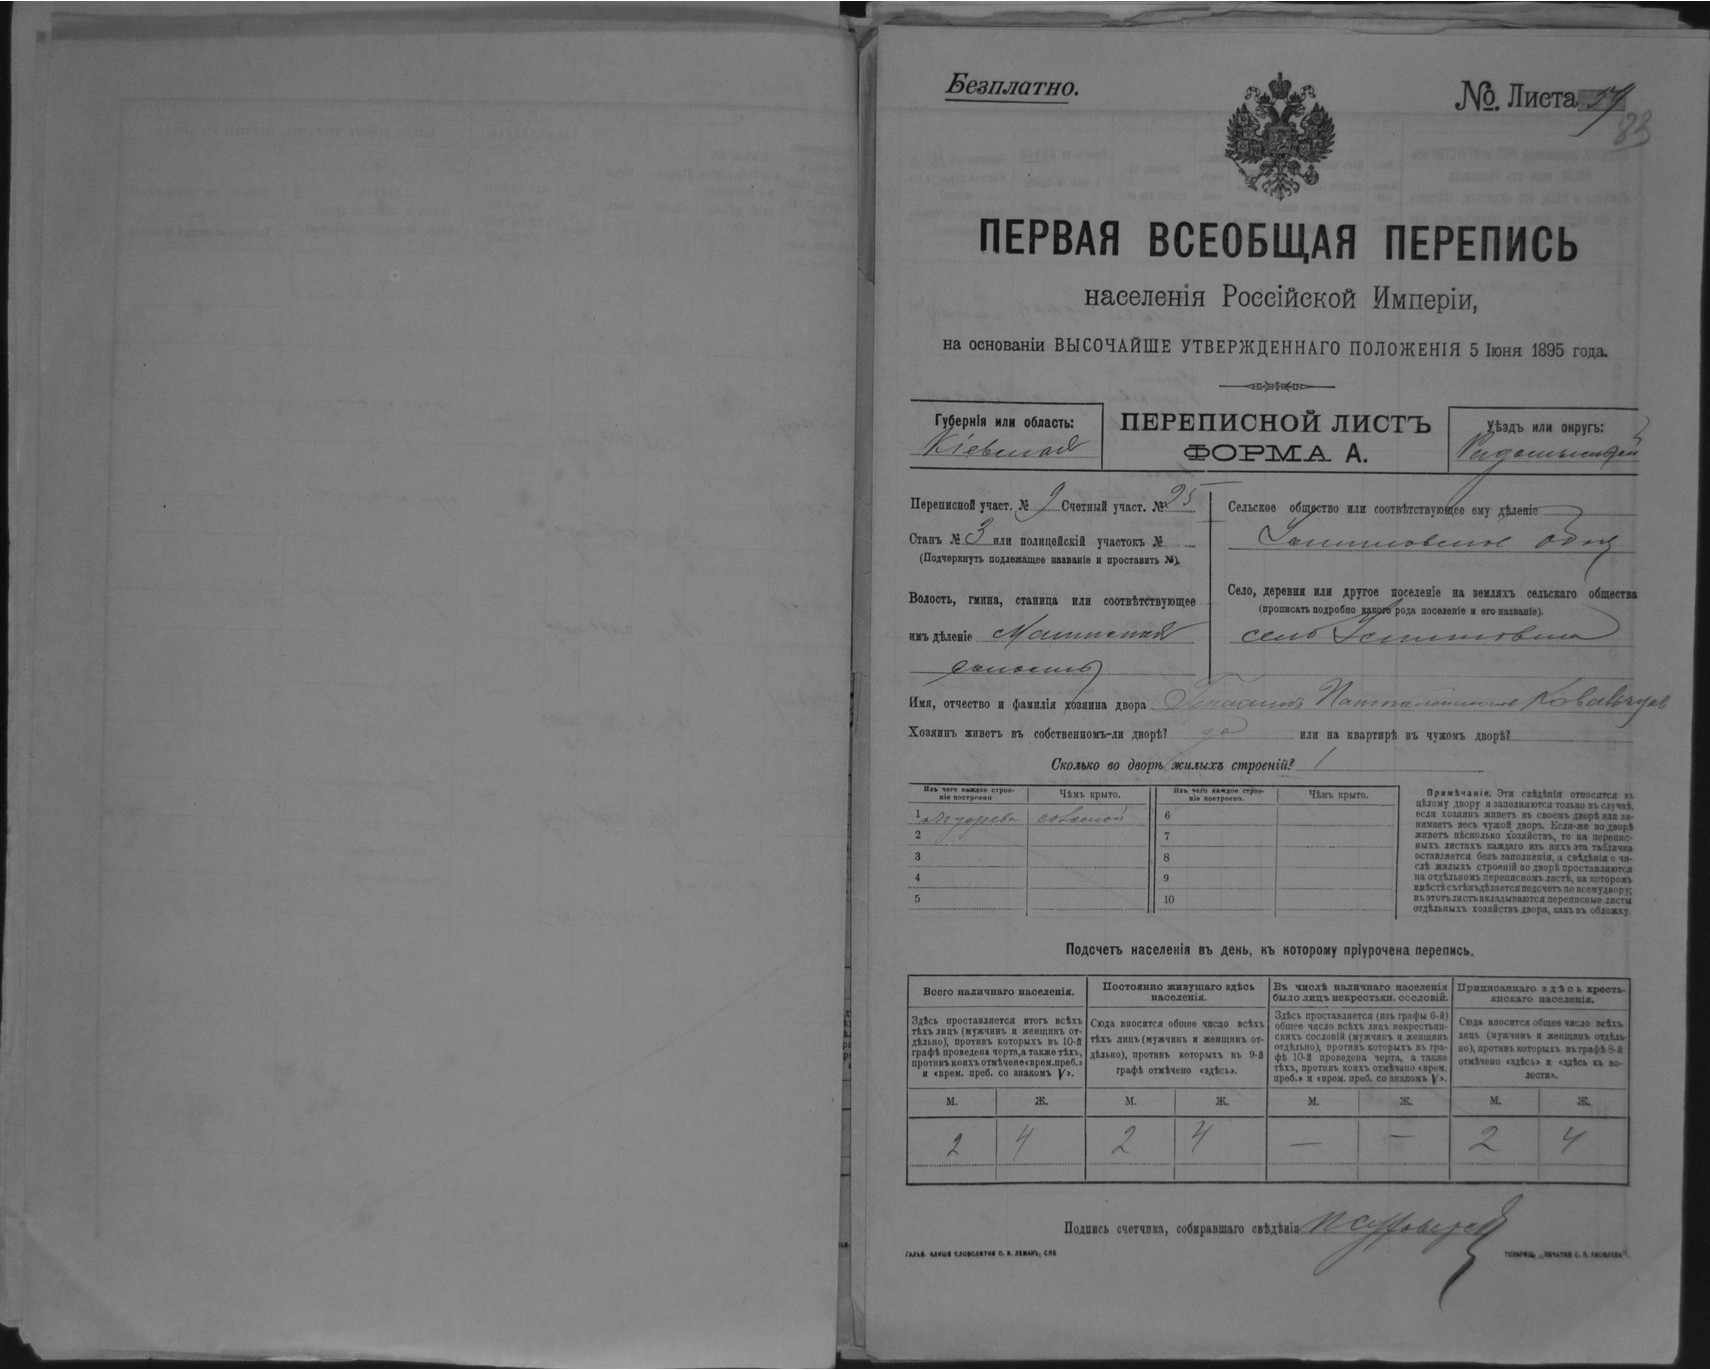 Безплатно.
№. Листа 57
83
ПЕРВАЯ ВСЕОБЩАЯ ПЕРЕПИСЬ
населенія Россійской Имперіи,
на основаніи ВЫСОЧАЙШЕ УТВЕРЖДЕННАГО ПОЛОЖЕНІЯ 5 Іюня 1895 года.
Губернія или область:
Кіевская
ПЕРЕПИСНОЙ ЛИСТЪ
ФОРМА А.
Уѣздъ или округъ:
Радомысльскій
Переписной участ. № 9 Счетный участ. № 25
Станъ № 3 или полицейскій участокъ №
(Подчеркнуть подлежащее названіе и проставить №).
Волость, гмина, станица или соотвѣтствующее
имъ дѣленіе
волость
Сельское общество или соотвѣтствующее ему дѣленіе
Село, деревня или другое поселеніе на земляхъ сельскаго общества
(прописать подробно какого рода поселеніе и его названіе).
село
Имя, отчество и фамилія хозяина двора
Хозяинъ живетъ въ собственномъ-ли дворѣ? да или на квартирѣ въ чужомъ дворѣ?
Сколько во дворѣ жилыхъ строеній? 1
Изъ чего каждое строе-
ніе построено
Чѣмъ крыто.
Изъ чего каждое строе-
ніе построено.
Чѣмъ крыто.
1 изъ дерева соломой 6
2 7
3 8
4 9
5 10
Примѣчаніе. Эти свѣдѣнія относятся къ
цѣлому двору и заполняются только въ случаѣ,
если хозяинъ живетъ въ своемъ дворѣ или за-
нимаетъ весь чужой дворъ. Если-же во дворѣ
живетъ нѣсколько хозяйствъ, то на перепис-
ныхъ листахъ каждаго изъ нихъ эта табличка
оставляется безъ заполненія, а свѣдѣнія о чи-
слѣ жилыхъ строеній во дворѣ проставляются
на отдѣльномъ переписномъ листѣ, на которомъ
вмѣстѣ съ тѣмъ дѣлается подсчетъ по всему двору;
въ этотъ листъ вкладываются переписные листы
отдѣльныхъ хозяйствъ двора, какъ въ обложку.
Подсчетъ населенія въ день, къ которому пріурочена перепись.
Всего наличнаго населенія.
Здѣсь проставляется итогъ всѣхъ
тѣхъ лицъ (мужчинъ и женщинъ от-
дѣльно), противъ которыхъ въ 10-й
графѣ проведена черта, а также тѣхъ,
противъ коихъ отмѣчено «врем. преб.»
и «врем. преб. со знакомъ V».
Постоянно живущаго здѣсь
населенія.
Сюда вносится общее число всѣхъ
тѣхъ лицъ (мужчинъ и женщинъ от-
дѣльно), противъ которыхъ въ 9-й
графѣ отмѣчено «здѣсь».
Въ числѣ наличнаго населенія
было лицъ некрестьян. сословій.
Здѣсь проставляется (изъ графы 6-й)
общее число всѣхъ лицъ некрестьян-
скихъ сословій (мужчинъ и женщинъ
отдѣльно), противъ которыхъ въ гра-
фѣ 10-й проведена черта, а также
тѣхъ, противъ коихъ отмѣчено «врем.
преб.» и «врем. преб. со знакомъ V».
Приписаннаго здѣсь кресть-
янскаго населенія.
Сюда вносится общее число всѣхъ
лицъ (мужчинъ и женщинъ отдѣль-
но), противъ которыхъ въ графѣ 8-й
отмѣчено «здѣсь» и «здѣсь въ во-
лости».
М. Ж. М. Ж. М. Ж. М. Ж.
2 4 2 4 — — 2 4
Подпись счетчика, собиравшаго свѣдѣнія
ГАЛЬВ. КЛИШЕ СЛОВОЛИТНИ О. И. ЛЕМАНЪ, СПБ
ТОВАРИЩ. „ПЕЧАТНЯ С. П. ЯКОВЛЕВА“.